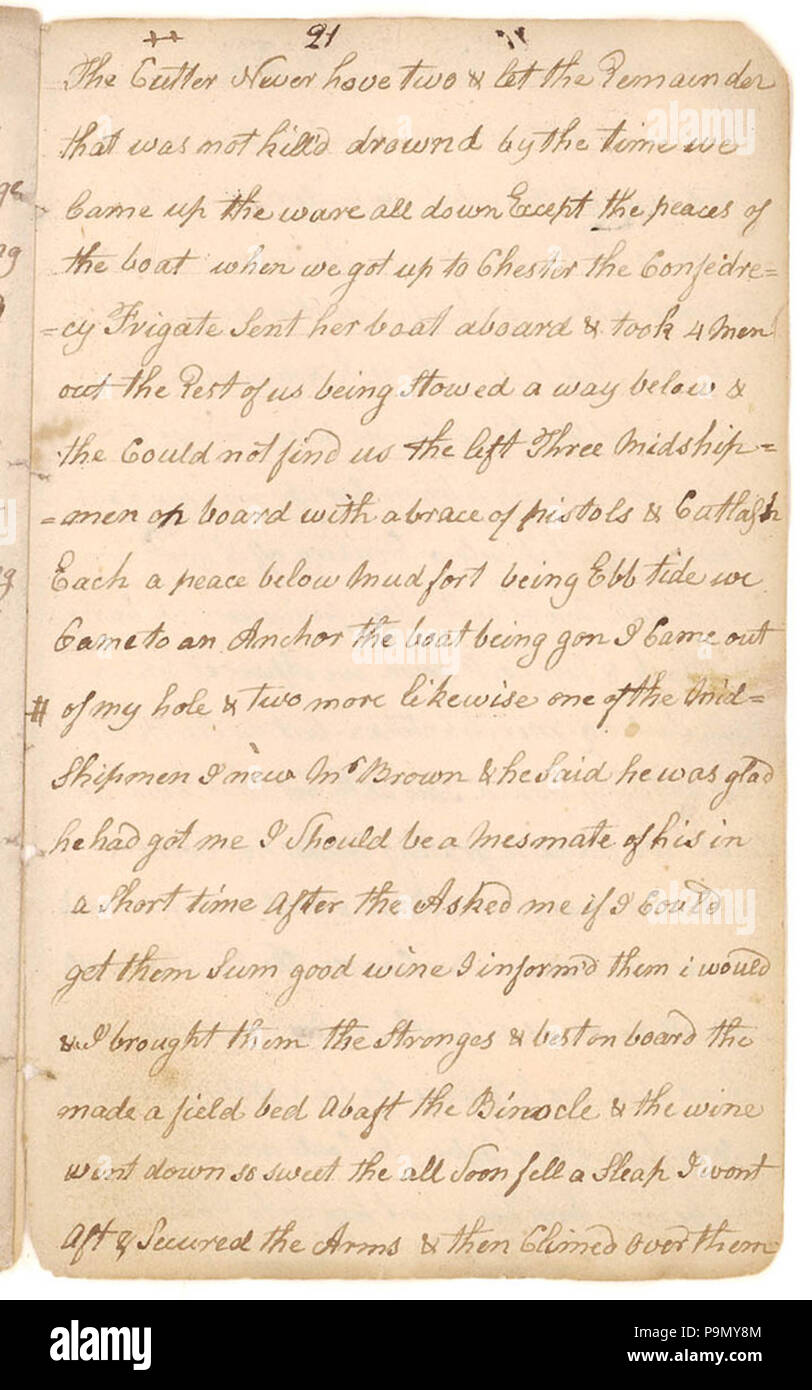 21
The Cutter Never hove two & let the Remainder
that was not kill'd drownd by the time we
Came up the ware all down Except the peaces of
the boat when we got up to Chester the Confedre=
=cy Frigate Sent her boat aboard & took 4 Men
out the Rest of us being Stowed a way below &
the Could not find us the left Three Midship=
=men on board with a brace of pistols & Cutlash
Each a peace below Mud fort being Ebb tide we
Came to an Anchor the boat being gon I Came out
# of my hole & two more likewise one of the Mid=
Shipmen I new Mr Brown & he Said he was glad
he had got me I Should be a Mesmate of his in
a Short time After the Asked me if I Could
get them Sum good wine I inform'd them i would
& I brought them the Stronges & best on board the
made a field bed Abaft the Binocle & the wine
went down so sweet the all Soon fell a Sleap I went
Aft & Secured the Arms & then Climed Over them
alamy
Image ID: P9MY8M
www.alamy.com